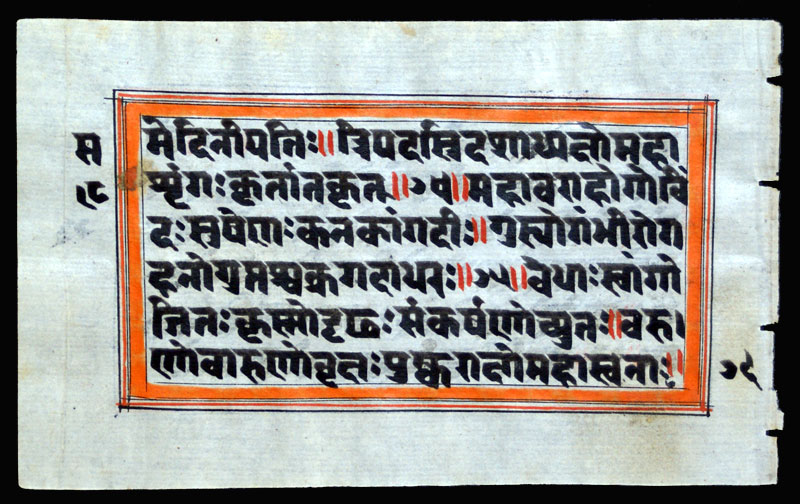 स मेदिनीपतिः॥त्रिपदस्त्रिदशाध्यक्षोमहा
शृंगःकृतांतकृत्॥ ॥महावराहोगोविं
दःसुषेणःकनकांगदीः॥गुह्योगंभीरोग
हनोगुप्तश्चक्रगदाधरः॥ ॥वेधाःस्वांगो
जितःकृष्णोदृढःसंकर्षणोच्युतः॥वरु।
णोवारुणोवृक्षःपुष्कराक्षोमहास्वनाः॥